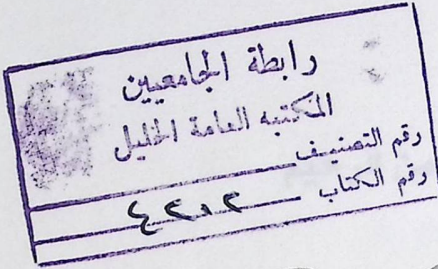 رابطة الجامعيين
المكتبه العامة الخليل
رقم التصنيف
رقم الكتاب ٤٢٠٢